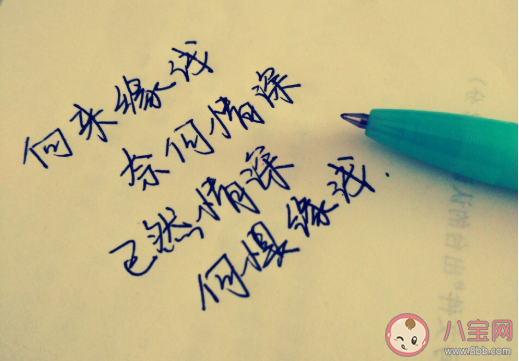 何来缘浅
奈何情深
已然情深
何惧缘浅.
八宝网
www.8bb.com